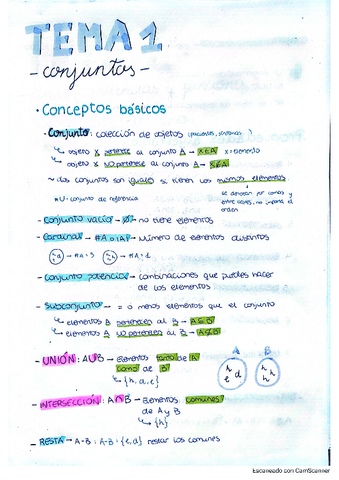 TEMA 1
- conjuntos -
· Conceptos básicos
· Conjunto: colección de objetos (
↳ objeto X pertenece al conjunto A → X∈A x: elemento
↳ objeto X no pertenece al conjunto A → X∉A
~ dos conjuntos son iguales si tienen los mismos elementos
*U: conjunto de referencia
se denotan por comas y
entre llaves, no importa el
orden
- Conjunto vacío → ∅ → no tiene elementos
- Cardinal → #A o |A| → Número de elementos distintos
→ #A = 3 → #A = 1
- Conjunto potencia → combinaciones que puedes hacer
de los elementos
- Subconjunto → = o menos elementos que el conjunto
↳ elementos A pertenecen al B → A⊆B
↳ elementos A no pertenecen al B → A⊄B
- UNIÓN: A∪B → Elementos tanto de A
como de B
↳ {h, d, e}
A B
h e d
h h h
- INTERSECCIÓN: A∩B → Elementos comunes
de A y B
↳ {h}
- RESTA → A-B: A-B = {e, d} restar los comunes
Escaneado con CamScanner